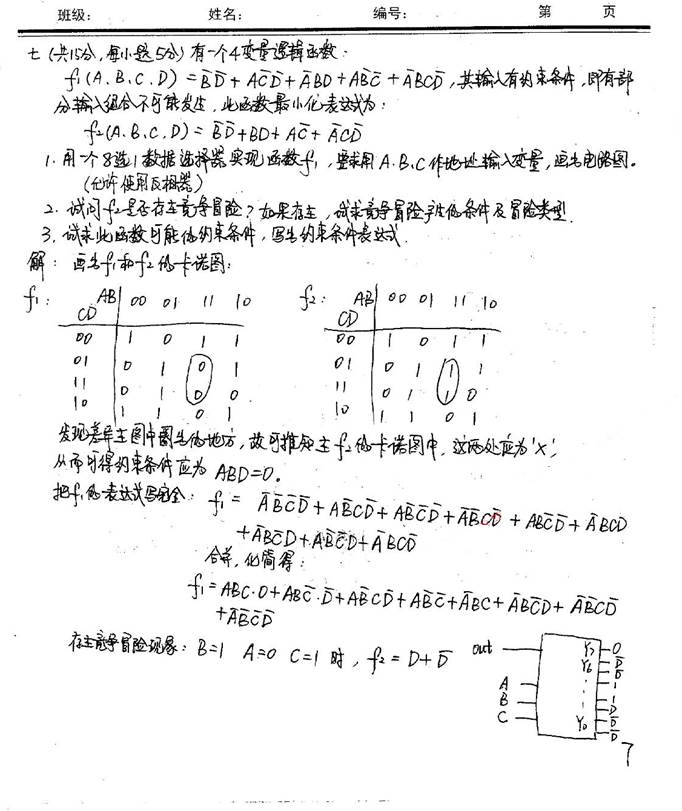 班级： 姓名： 编号： 第 页
七（共15分，每小题5分）有一个4变量逻辑函数：
f₁(A.B.C.D) = B̄D̄ + AC̄D̄ + ĀBD + AB̄C̄ + ĀBCD̄，其输入有约束条件，即有部
分输入组合不可能发生，此函数最小化表达式为：
f₂(A.B.C.D) = B̄D̄ + BD + AC̄ + ĀCD̄
1. 用一个8选1数据选择器实现函数f₁，要求用A.B.C作地址输入变量，画出电路图。
（允许使用反相器）
2. 试问f₂是否存在竞争冒险？如果存在，试求竞争冒险产生的条件及冒险类型.
3. 试求此函数可能的约束条件，写出约束条件表达式.
解：画出f₁和f₂的卡诺图：
f₁： AB 00 01 11 10 f₂： AB 00 01 11 10
CD CD
00 1 0 1 1 00 1 0 1 1
01 0 1 0 1 01 0 1 1 1
11 0 1 0 0 11 0 1 1 0
10 1 1 0 1 10 1 1 0 1
发现差异在图中圈出的地方，故可推知在f₂的卡诺图中，这两处应为'×'，
从而可得约束条件应为 ABD=0。
把f₁的表达式写完全：f₁ = ĀB̄C̄D̄ + AB̄CD̄ + AB̄C̄D̄ + ĀB̄CD̄ + ABC̄D̄ + ĀBCD
+ ĀBC̄D + AB̄C̄D + ĀBCD̄
合并，化简得：
f₁ = ABC·0 + ABC̄·D̄ + AB̄CD̄ + AB̄C̄ + ĀBC + ĀBC̄D + ĀB̄CD̄
+ ĀB̄C̄D̄
存在竞争冒险现象：B=1 A=0 C=1 时，f₂ = D + D̄
out Y₇ 0
Y₆ D̄
D̄
A 1
B 1
D
C Y₀ D̄
D̄
7